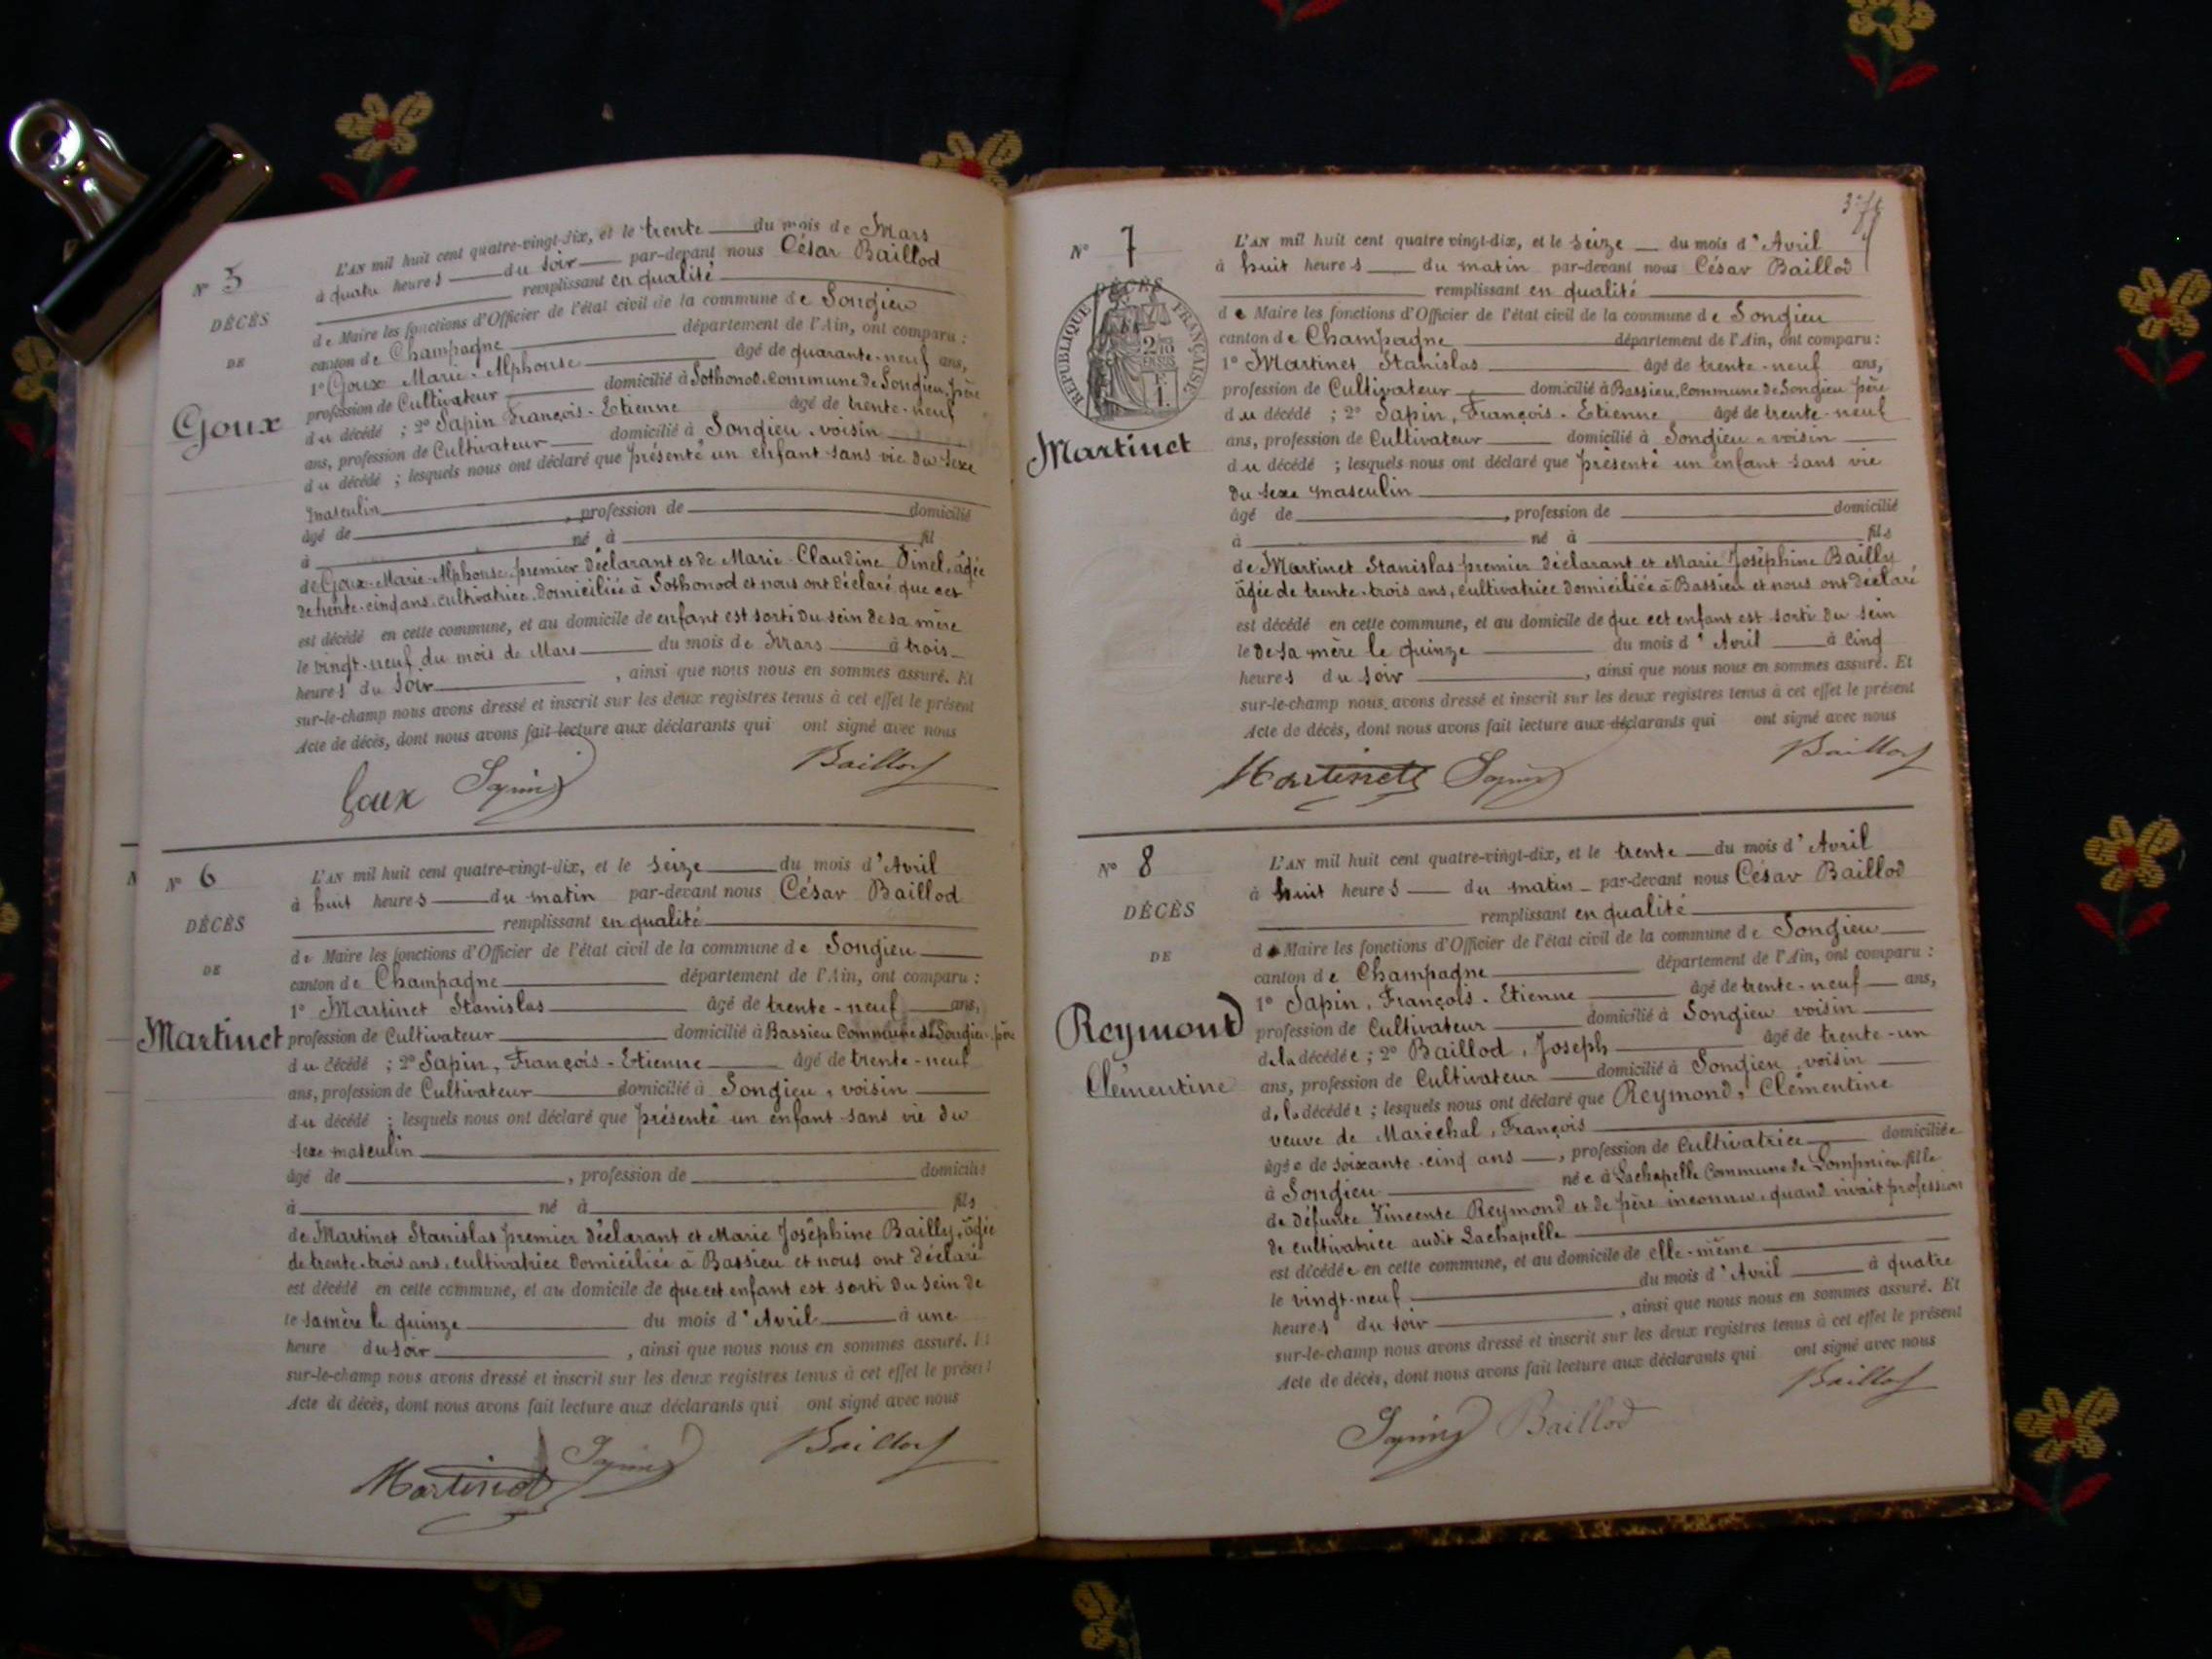 N° 5
DÉCÈS
DE
Goux
L'AN mil huit cent quatre-vingt-dix, et le trente du mois de Mars
à quatre heures du soir par-devant nous César Baillod
remplissant en qualité
de Maire les fonctions d'Officier de l'état civil de la commune de Songieu
canton de Champagne département de l'Ain, ont comparu :
1° Goux Marie-Alphonse âgé de quarante-neuf ans,
profession de Cultivateur domicilié à Sothonod, Commune de Songieu, père
du décédé ; 2° Sapin François-Etienne âgé de trente-neuf
ans, profession de Cultivateur domicilié à Songieu, voisin
du décédé ; lesquels nous ont déclaré que présenté un enfant sans vie du sexe
masculin
âgé de , profession de domicilié
à né à fil
de Goux-Marie-Alphonse, premier déclarant et de Marie-Claudine Vinel, âgée
de trente-cinq ans, cultivatrice, domiciliée à Sothonod et nous ont déclaré que cet
est décédé en cette commune, et au domicile de enfant est sorti du sein de sa mère
le vingt-neuf du mois de Mars du mois de Mars à trois
heures du soir , ainsi que nous nous en sommes assuré. Et
sur-le-champ nous avons dressé et inscrit sur les deux registres tenus à cet effet le présent
Acte de décès, dont nous avons fait lecture aux déclarants qui ont signé avec nous
Goux Sapin Baillod
N° 6
DÉCÈS
DE
Martinet
L'AN mil huit cent quatre-vingt-dix, et le seize du mois d'Avril
à huit heures du matin par-devant nous César Baillod
remplissant en qualité
de Maire les fonctions d'Officier de l'état civil de la commune de Songieu
canton de Champagne département de l'Ain, ont comparu :
1° Martinet Stanislas âgé de trente-neuf ans,
profession de Cultivateur domicilié à Bassieu Commune de Songieu, père
du décédé ; 2° Sapin, François-Etienne âgé de trente-neuf
ans, profession de Cultivateur domicilié à Songieu, voisin
du décédé ; lesquels nous ont déclaré que présenté un enfant sans vie du
sexe masculin
âgé de , profession de domicilié
à né à fils
de Martinet Stanislas premier déclarant et Marie Joséphine Bailly, âgée
de trente-trois ans, cultivatrice domiciliée à Bassieu et nous ont déclaré
est décédé en cette commune, et au domicile de que cet enfant est sorti du sein de
le sa mère le quinze du mois d'Avril à une
heure du soir , ainsi que nous nous en sommes assuré. Et
sur-le-champ nous avons dressé et inscrit sur les deux registres tenus à cet effet le présent
Acte de décès, dont nous avons fait lecture aux déclarants qui ont signé avec nous
Martinet Sapin Baillod
N° 7
DÉCÈS
RÉPUBLIQUE FRANÇAISE
Martinet
L'AN mil huit cent quatre vingt-dix, et le seize du mois d'Avril
à huit heures du matin par-devant nous César Baillod
remplissant en qualité
de Maire les fonctions d'Officier de l'état civil de la commune de Songieu
canton de Champagne département de l'Ain, ont comparu :
1° Martinet Stanislas âgé de trente-neuf ans,
profession de Cultivateur domicilié à Bassieu, Commune de Songieu père
du décédé ; 2° Sapin, François-Etienne âgé de trente-neuf
ans, profession de Cultivateur domicilié à Songieu - voisin
du décédé ; lesquels nous ont déclaré que présenté un enfant sans vie
du sexe masculin
âgé de , profession de domicilié
à né à fils
de Martinet Stanislas premier déclarant et Marie Joséphine Bailly
âgée de trente-trois ans, cultivatrice domiciliée à Bassieu et nous ont déclaré
est décédé en cette commune, et au domicile de que cet enfant est sorti du sein
le de sa mère le quinze du mois d'Avril à cinq
heures du soir , ainsi que nous nous en sommes assuré. Et
sur-le-champ nous avons dressé et inscrit sur les deux registres tenus à cet effet le présent
Acte de décès, dont nous avons fait lecture aux déclarants qui ont signé avec nous
Martinet Sapin Baillod
N° 8
DÉCÈS
DE
Reymond
Clémentine
L'AN mil huit cent quatre-vingt-dix, et le trente du mois d'Avril
à huit heures du matin par-devant nous César Baillod
remplissant en qualité
de Maire les fonctions d'Officier de l'état civil de la commune de Songieu
canton de Champagne département de l'Ain, ont comparu :
1° Sapin, François-Etienne âgé de trente-neuf ans,
profession de Cultivateur domicilié à Songieu voisin
de la décédée ; 2° Baillod, Joseph âgé de trente-un
ans, profession de Cultivateur domicilié à Songieu, voisin
de la décédée ; lesquels nous ont déclaré que Reymond, Clémentine
veuve de Maréchal, François
âgée de soixante-cinq ans , profession de Cultivatrice domiciliée
à Songieu née à Lachapelle Commune de Lompnieu fille
de défunte Vincente Reymond et de père inconnu, quand vivait profession
de cultivatrice audit Lachapelle
est décédée en cette commune, et au domicile de elle-même
le vingt-neuf du mois d'Avril à quatre
heures du soir , ainsi que nous nous en sommes assuré. Et
sur-le-champ nous avons dressé et inscrit sur les deux registres tenus à cet effet le présent
Acte de décès, dont nous avons fait lecture aux déclarants qui ont signé avec nous
Sapin Baillod Baillod